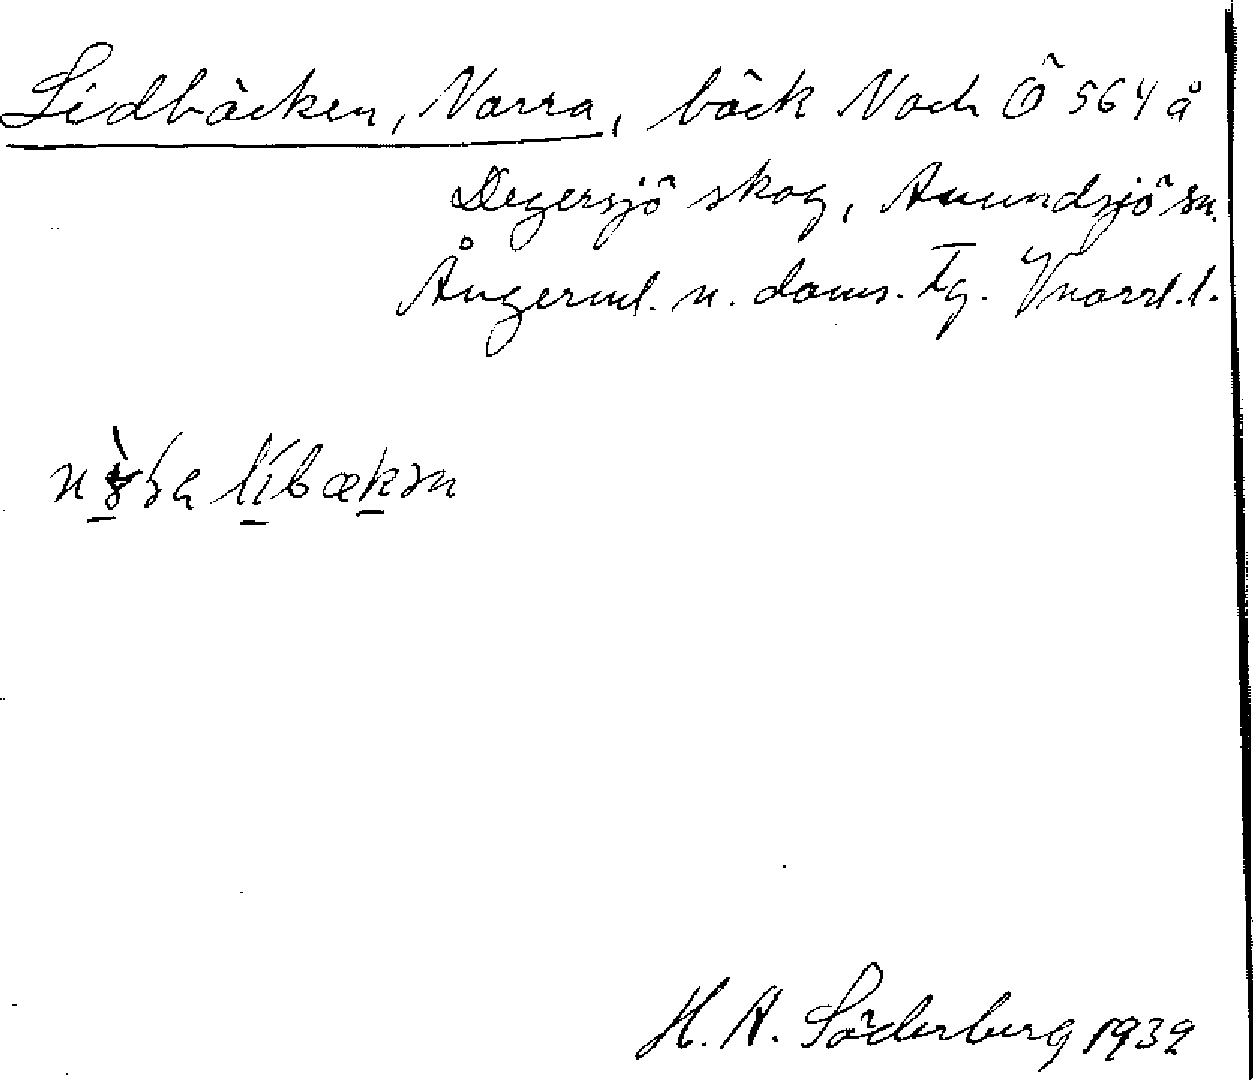 Lidbäcken, Norra, bäck N och Ö 564 å
Degersjö skog, Anundsjö sn.
Ångerml. n. doms. Tg. Vnorrl. l.
líbækən
H. A. Söderberg 1932